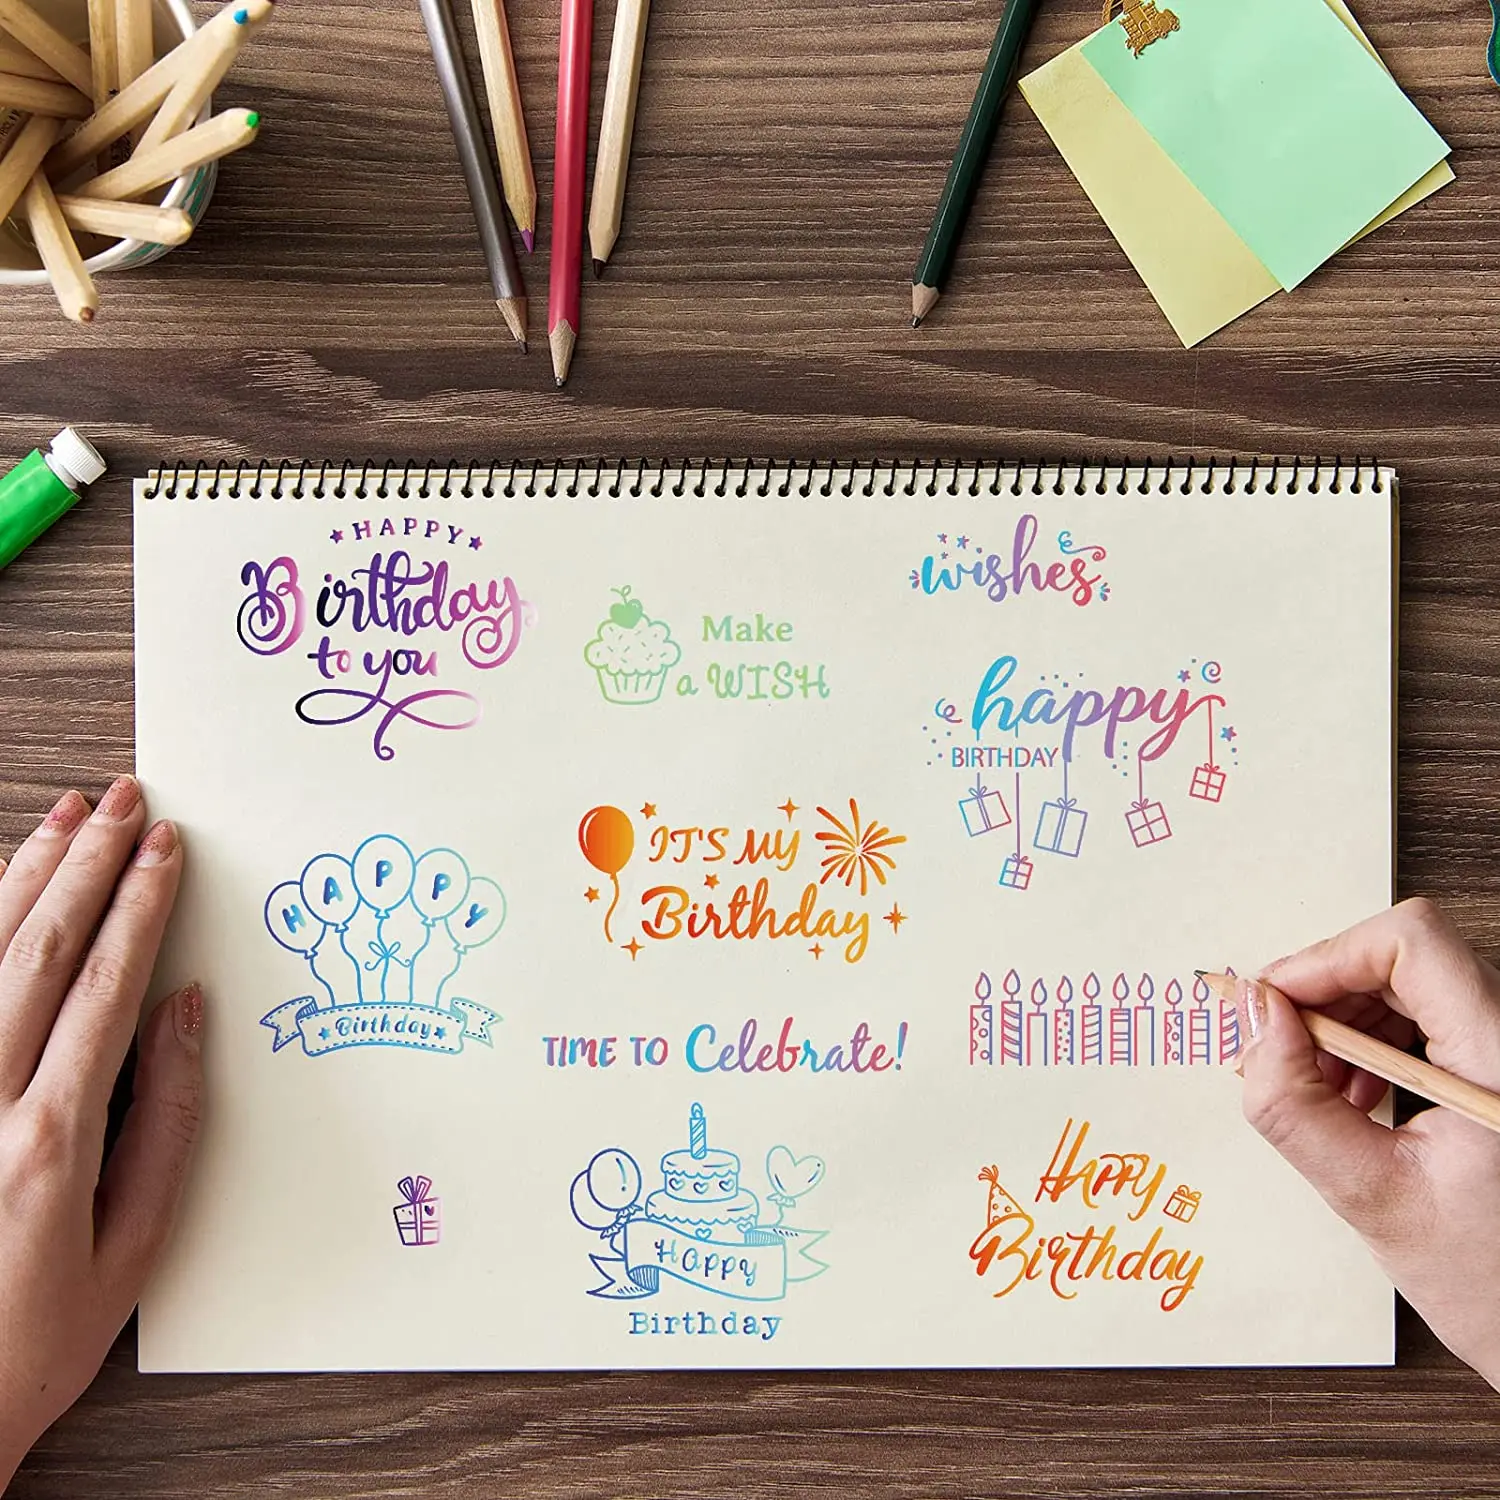 HAPPY
Birthday
to you
Make
a WISH
wishes
happy
BIRTHDAY
HAPPY
Birthday
IT'S MY
Birthday
TIME TO Celebrate!
Happy
Birthday
HAPPY
Birthday